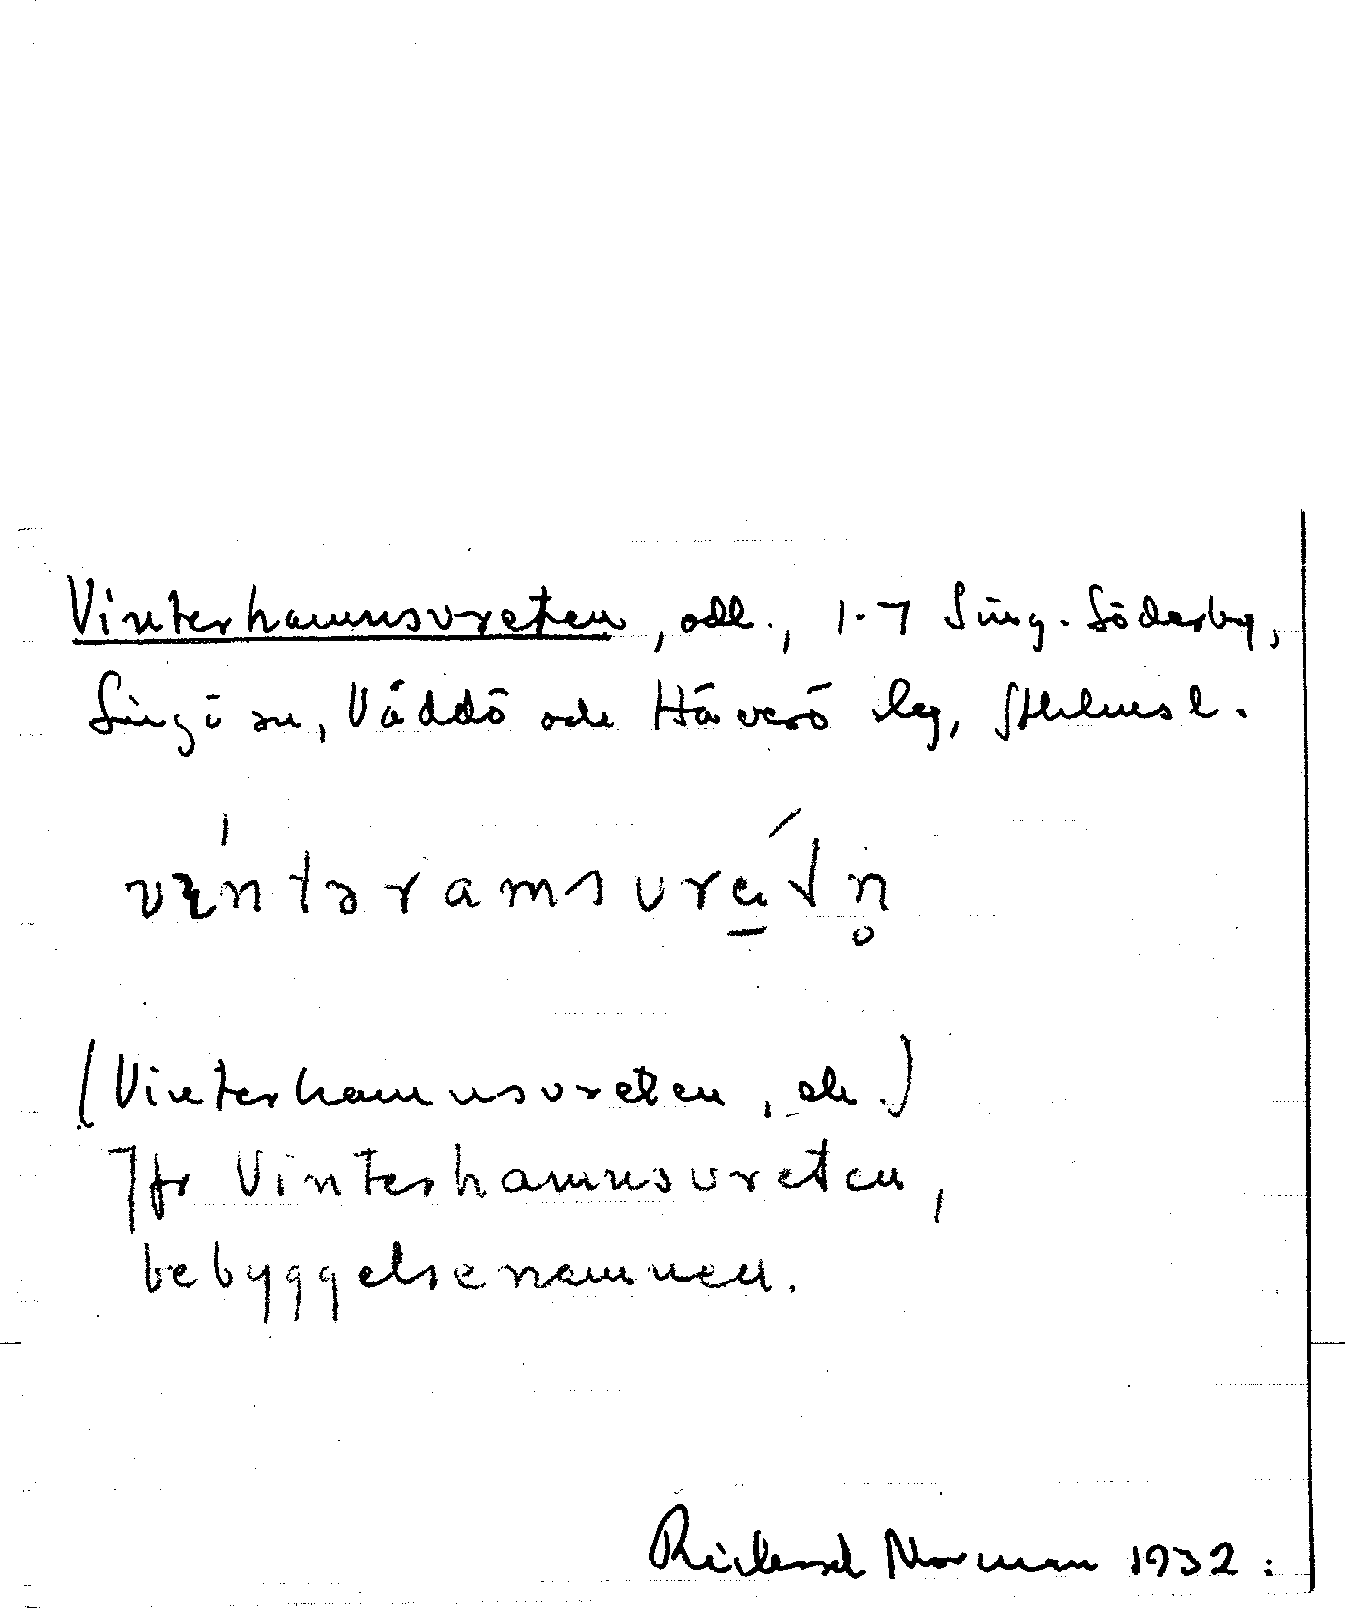 Vinterhamnsvreten, odl., 1-7 Sing-Söderby,
Singö sn, Väddö och Häverö slg, Sthlms l.
víntəramsvrétn̥
(Vinterhamnsvreten, ek.)
Jfr Vinterhamnsvreten,
bebyggelsenamnen.
Rickard Norman 1932: